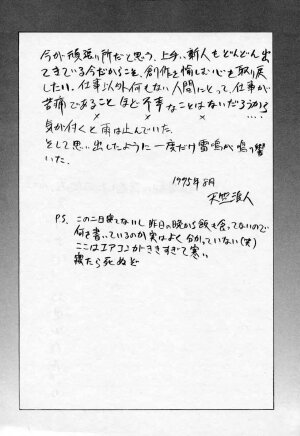 今が頑張り所だと思う。上手い新人もどんどん出
てきている今だからこそ、創作を愉しむ心を取り戻
したい。仕事以外何もない人間にとって、仕事が
苦痛であることほど不幸なことはないだろうから
× × × ....
気が付くと雨は止んでいた。
そして思い出したように一度だけ雷鳴が鳴り響
いた。
1995年8月
天竺浪人
P.S. この二日寝てないし昨日の晩から飯も食ってないので
何を書いているのか実はよく分かっていない(笑)
ここはエアコンがききすぎて寒い
寝たら死ぬぞ